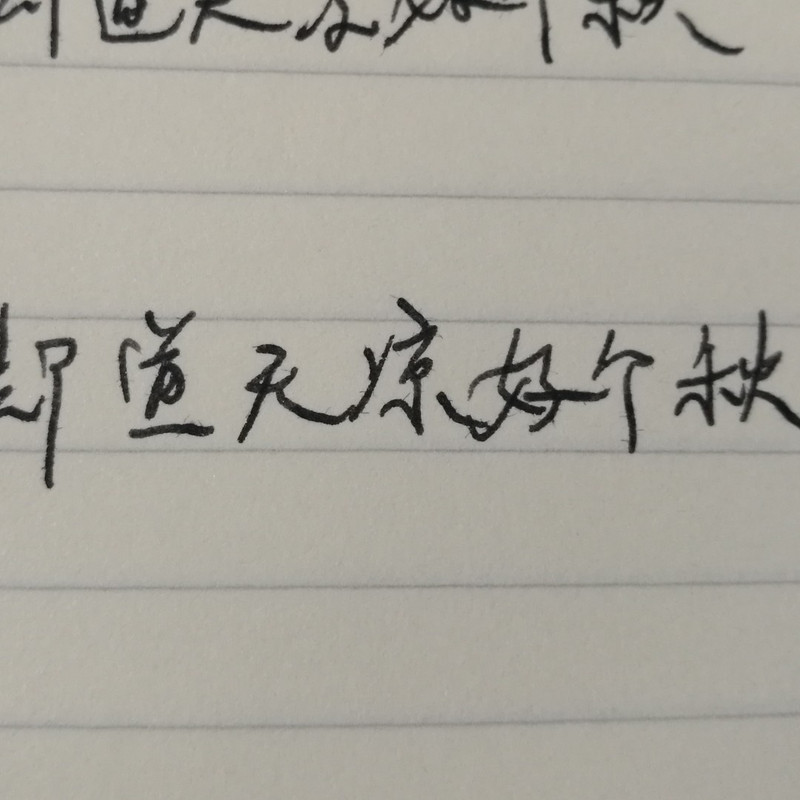 却道天凉好个秋
却道天凉好个秋